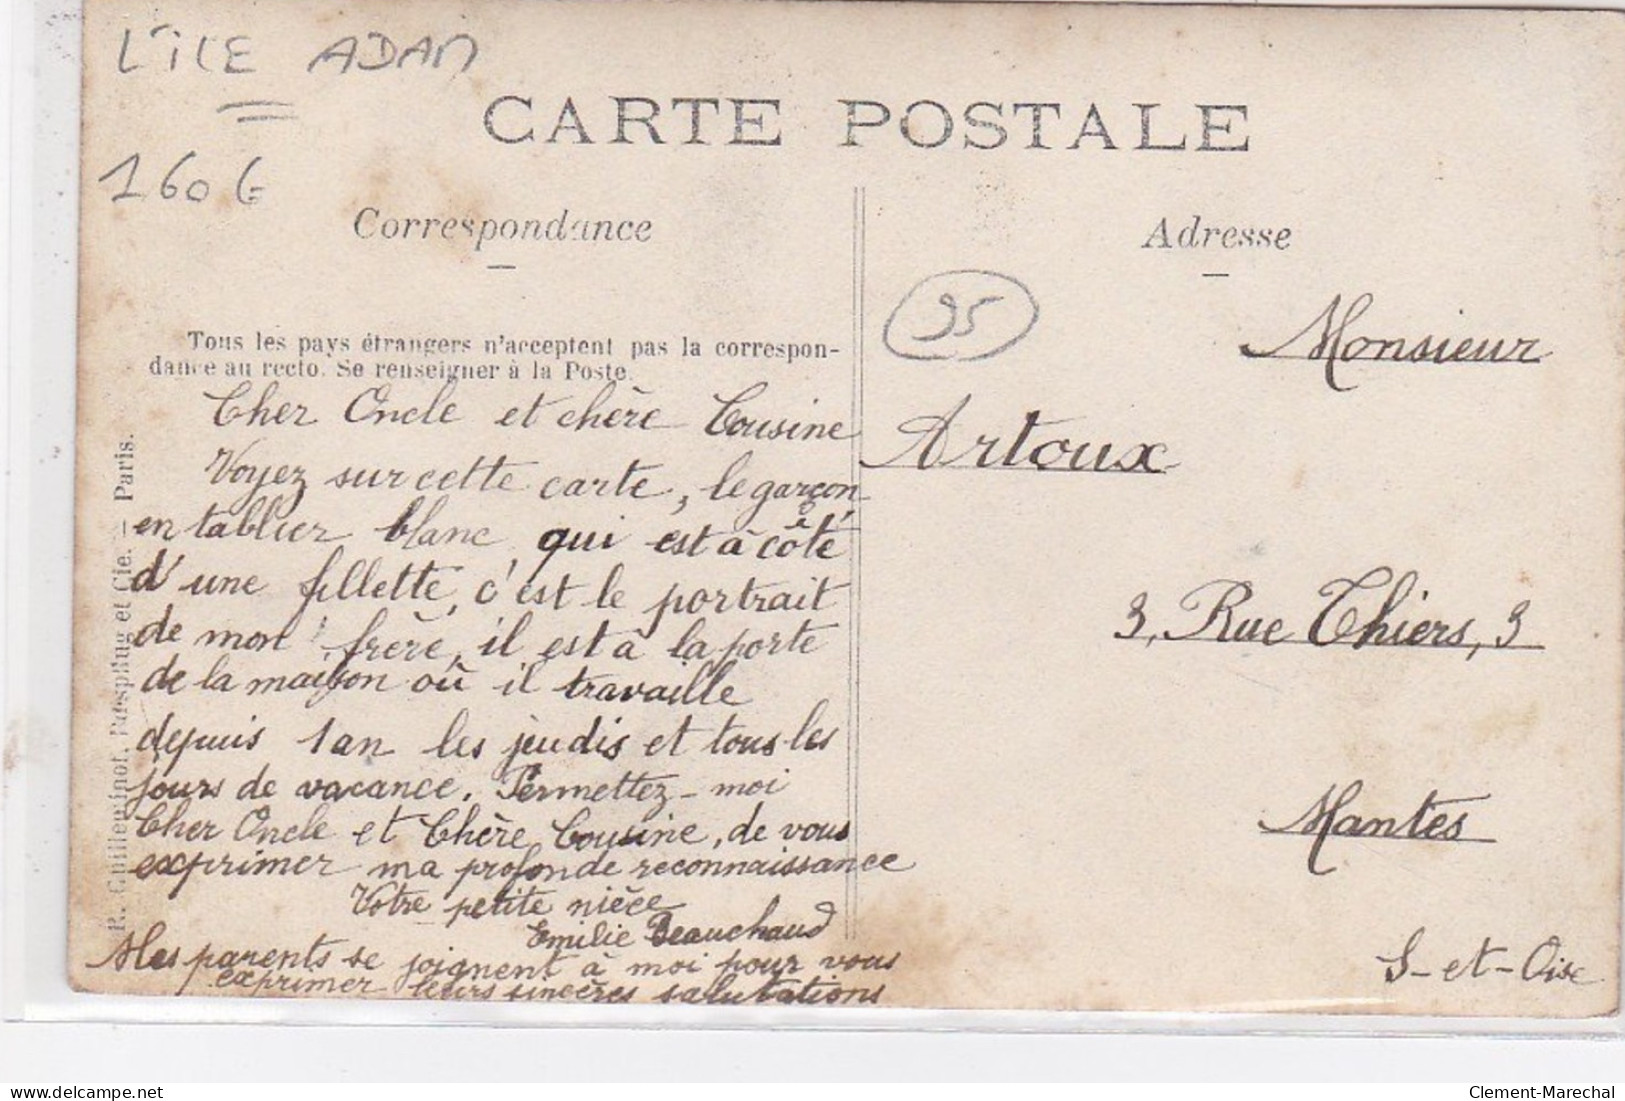 L'ILE ADAM
160 €
CARTE POSTALE
Correspondance
Tous les pays étrangers n'acceptent pas la correspon-
dance au recto. Se renseigner à la Poste.
Cher Oncle et chère Cousine
Voyez sur cette carte, le garçon
en tablier blanc qui est à côté
d'une fillette, c'est le portrait
de mon frère, il est à la porte
de la maison où il travaille
depuis 1 an les jeudis et tous les
jours de vacance. Permettez-moi
Cher Oncle et Chère Cousine, de vous
exprimer ma profonde reconnaissance
Votre petite nièce
Emilie Beauchaud
Mes parents se joignent à moi pour vous
exprimer leurs sincères salutations
R. Guilleminot, Bœspflug et Cie. — Paris.
Adresse
95
Monsieur
Artoux
3, Rue Thiers, 3
Mantes
S-et-Oise
delcampe.net
Clement-Marechal